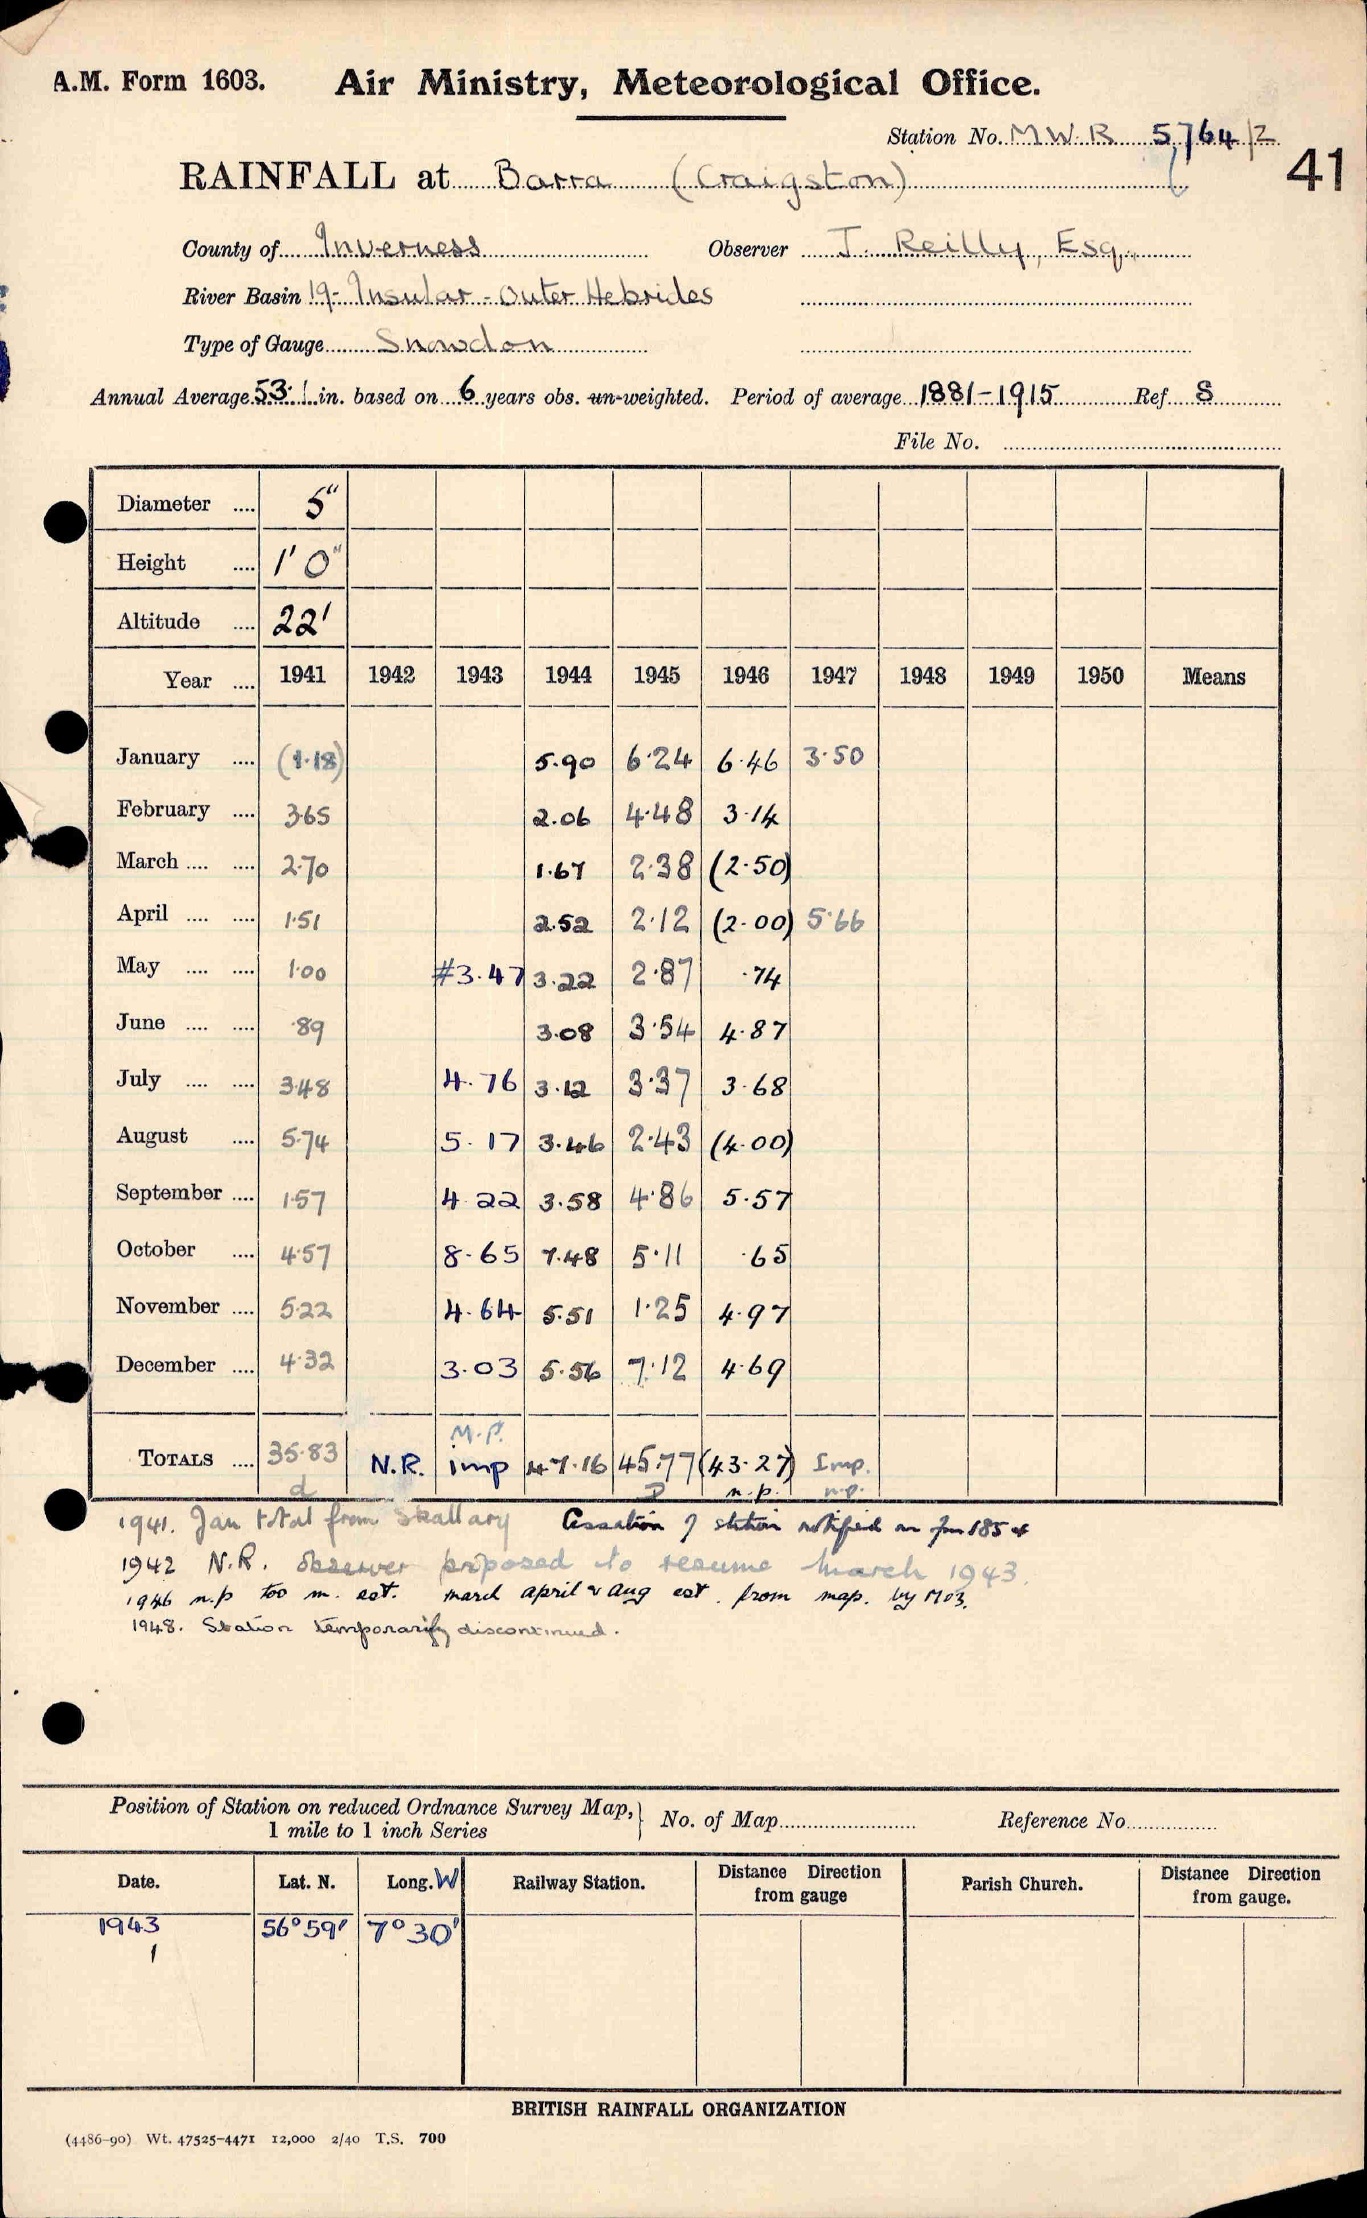 A.M. Form 1603. Air Ministry, Meteorological Office.
Station No. M.W.R 5764/2
41
RAINFALL at Barra (Craigston)
County of Inverness Observer J. Reilly, Esq.
River Basin 19- Insular - Outer Hebrides
Type of Gauge Snowdon
Annual Average 53.1 in. based on 6 years obs. un-weighted. Period of average 1881-1915 Ref S
File No.
Diameter 5"
Height 1' 0"
Altitude 22'
Year 1941 1942 1943 1944 1945 1946 1947 1948 1949 1950 Means
January (1.18) 5.90 6.24 6.46 3.50
February 3.65 2.06 4.48 3.14
March 2.70 1.67 2.38 (2.50)
April 1.51 2.52 2.12 (2.00) 5.66
May 1.00 #3.47 3.22 2.87 .74
June .89 3.08 3.54 4.87
July 3.48 4.76 3.12 3.37 3.68
August 5.74 5.17 3.46 2.43 (4.00)
September 1.57 4.22 3.58 4.86 5.57
October 4.57 8.65 7.48 5.11 .65
November 5.22 4.64 5.51 1.25 4.97
December 4.32 3.03 5.56 7.12 4.69
M.P.
TOTALS 35.83 N.R. imp 47.16 45.77 (43.27) Imp.
d D n.p. n.p.
1941. Jan total from Skallary Cessation of station notified on
1942 N.R. observer proposed to resume March 1943.
1946 n.p too m. est. march april & Aug est. from map. by M03.
1948. Station temporarily discontinued.
Position of Station on reduced Ordnance Survey Map, 1 mile to 1 inch Series No. of Map Reference No.
Date. Lat. N. Long. W Railway Station. Distance Direction from gauge Parish Church. Distance Direction from gauge.
1943 56° 59' 7° 30'
1
BRITISH RAINFALL ORGANIZATION
(4486-90) Wt. 47525-4471 12,000 2/40 T.S. 700